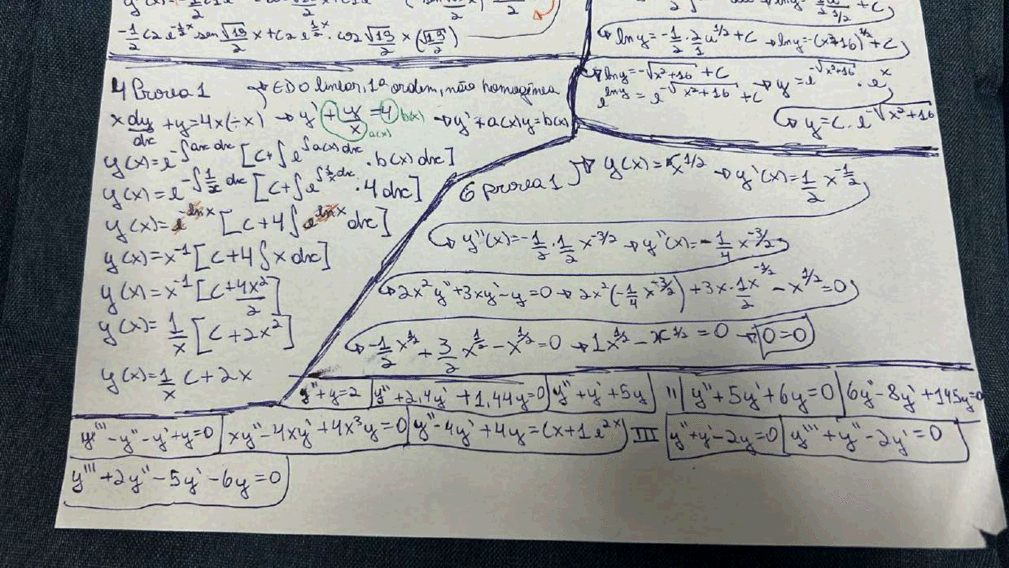 -1/2 c2 e^(1/2 x) sen √19/2 x + c2 e^(1/2 x) . cos √19/2 x (√19/2)
ln y = -1/2 . 2/1 u^(1/2) + C → ln y = -(x²+16)^(1/2) + C
ln y = -√(x²+16) + C
e^(ln y) = e^(-√(x²+16) + C) → y = e^(-√(x²+16)) . e^x
y = C . e^(-√(x²+16))
4 Prova 1 → EDO linear, 1ª ordem, não homogênea
x dy/dx + y = 4x (÷x) → y' + y/x = 4 b(x) → y' + a(x)y = b(x)
a(x)
y(x) = e^(-∫a(x) dx) [C + ∫ e^(∫a(x) dx) . b(x) dx]
y(x) = e^(-∫1/x dx) [C + ∫ e^(∫1/x dx) . 4 dx]
y(x) = e^(-ln x) [C + 4 ∫ e^(ln x) dx]
y(x) = x^(-1) [C + 4 ∫ x dx]
y(x) = x^(-1) [C + 4x²/2]
y(x) = 1/x [C + 2x²]
y(x) = 1/x C + 2x
6 prova 1 → y(x) = x^(1/2) → y'(x) = 1/2 x^(-1/2)
y''(x) = -1/2 . 1/2 x^(-3/2) → y''(x) = -1/4 x^(-3/2)
2x² y'' + 3xy' - y = 0 → 2x² (-1/4 x^(-3/2)) + 3x . 1/2 x^(-1/2) - x^(1/2) = 0
-1/2 x^(1/2) + 3/2 x^(1/2) - x^(1/2) = 0 → 1x^(1/2) - x^(1/2) = 0 → 0=0
y'' + y = 2 | y'' + 2,4y' + 1,44y = 0 | y'' + y' + 5y | 11 | y'' + 5y' + 6y = 0 | 6y'' - 8y' + 145y = 0
y''' - y'' - y' + y = 0 | xy'' - 4xy' + 4x³y = 0 | y'' - 4y' + 4y = (x+1 e^(2x)) III | y'' + y' - 2y = 0 | y''' + y'' - 2y' = 0
y''' + 2y'' - 5y' - 6y = 0